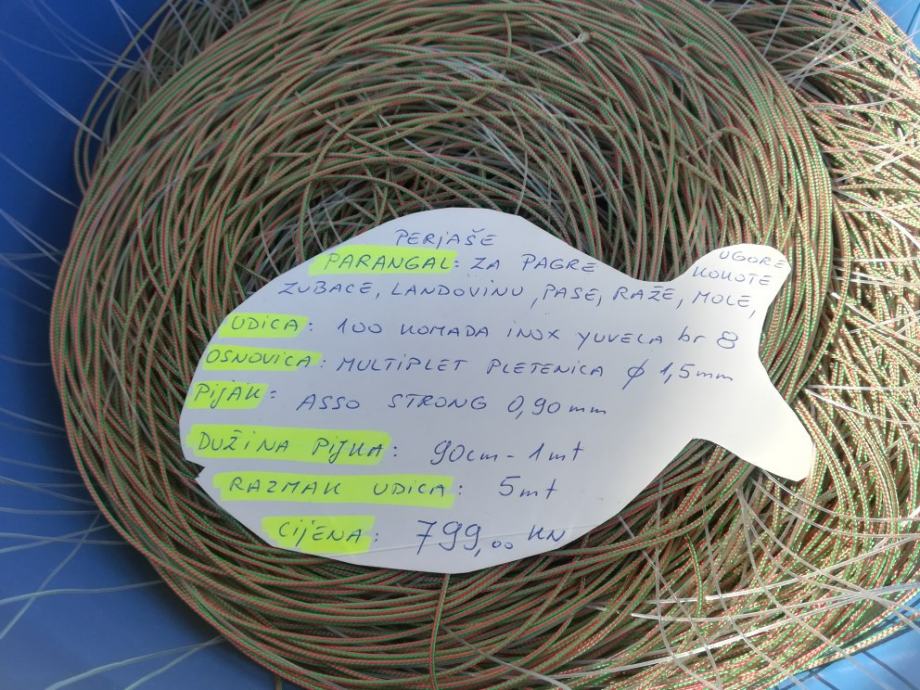 PERJAŠE
PARANGAL: ZA PAGRE UGORE
KOKOTE
ZUBACE, LANDOVINU, PASE, RAŽE, MOLE,
UDICA: 100 KOMADA INOX YUVELA br 8
OSNOVICA: MULTIPLET PLETENICA Ø 1,5mm
PIJAK: ASSO STRONG 0,90 mm
DUŽINA PIJKA: 90cm - 1mt
RAZMAK UDICA: 5mt
CIJENA: 799,00 KN